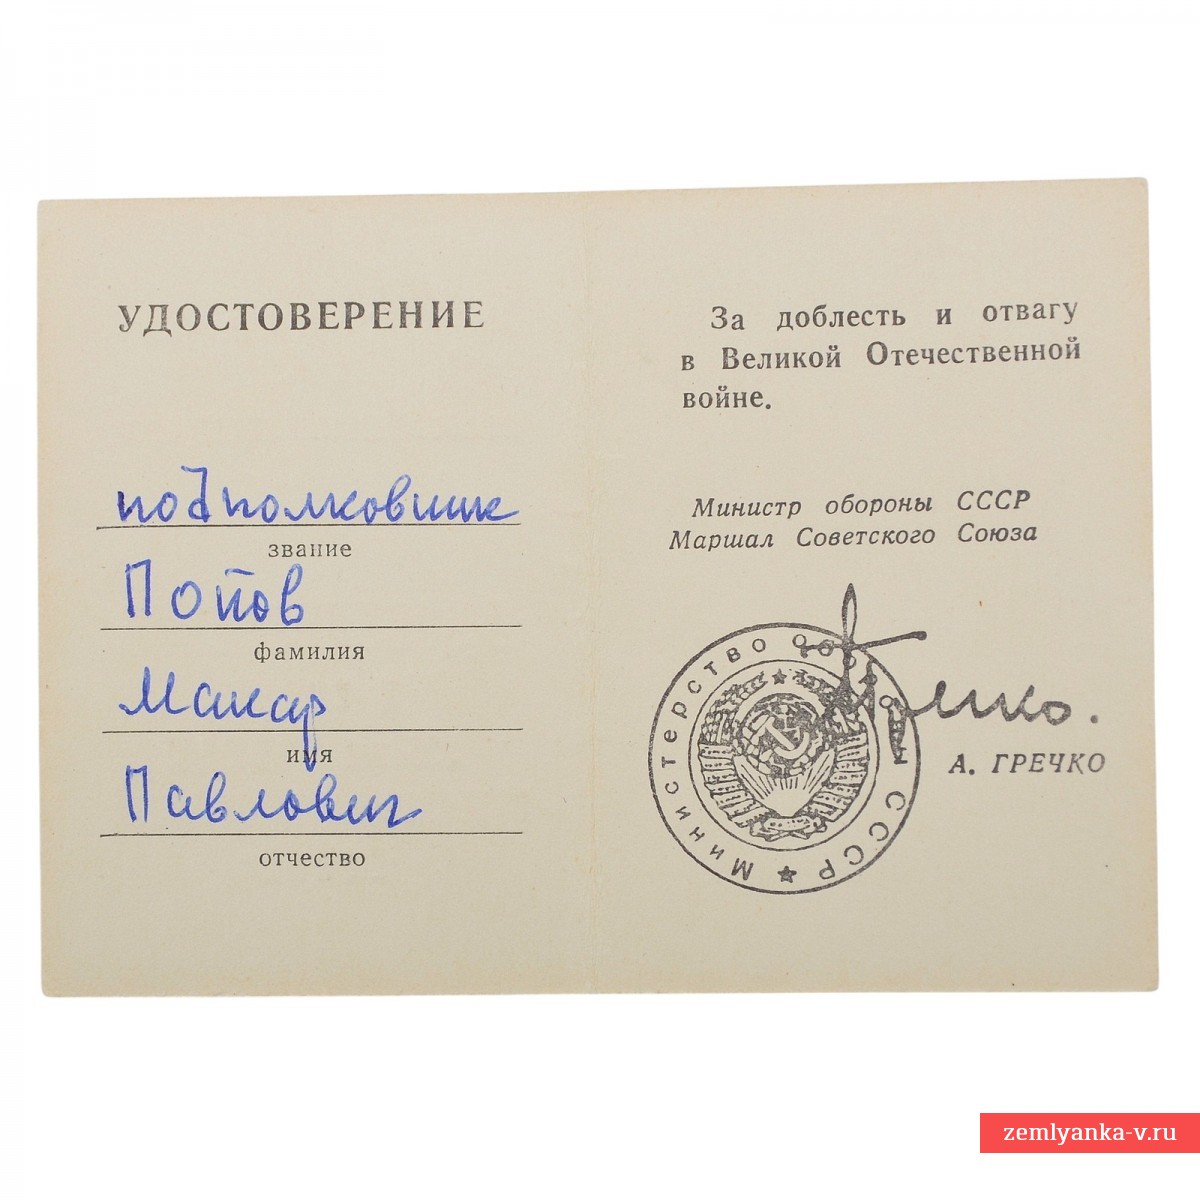 УДОСТОВЕРЕНИЕ
подполковник
звание
Попов
фамилия
Макар
имя
Павлович
отчество
За доблесть и отвагу
в Великой Отечественной
войне.
Министр обороны СССР
Маршал Советского Союза
Министерство обороны СССР
А. ГРЕЧКО
zemlyanka-v.ru